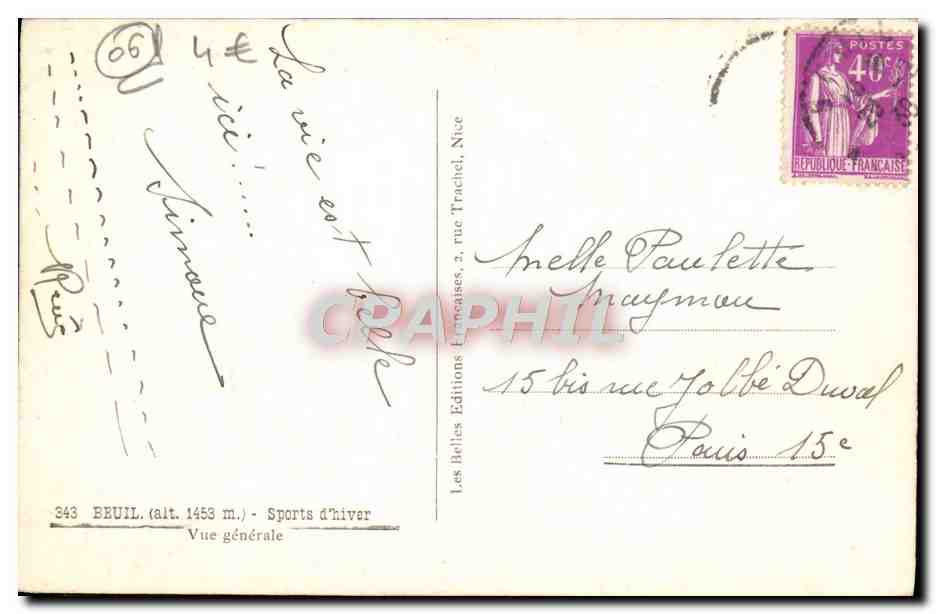 06
4 €
La vie est belle
ici !.....
Simone
343 BEUIL. (alt. 1453 m.) - Sports d'hiver
Vue générale
Les Belles Editions Françaises, 2, rue Trachel, Nice
POSTES
40c
RÉPUBLIQUE-FRANÇAISE
Melle Paulette
Maymou
15 bis rue Jobbé Duval
Paris 15e
CRAPHIL